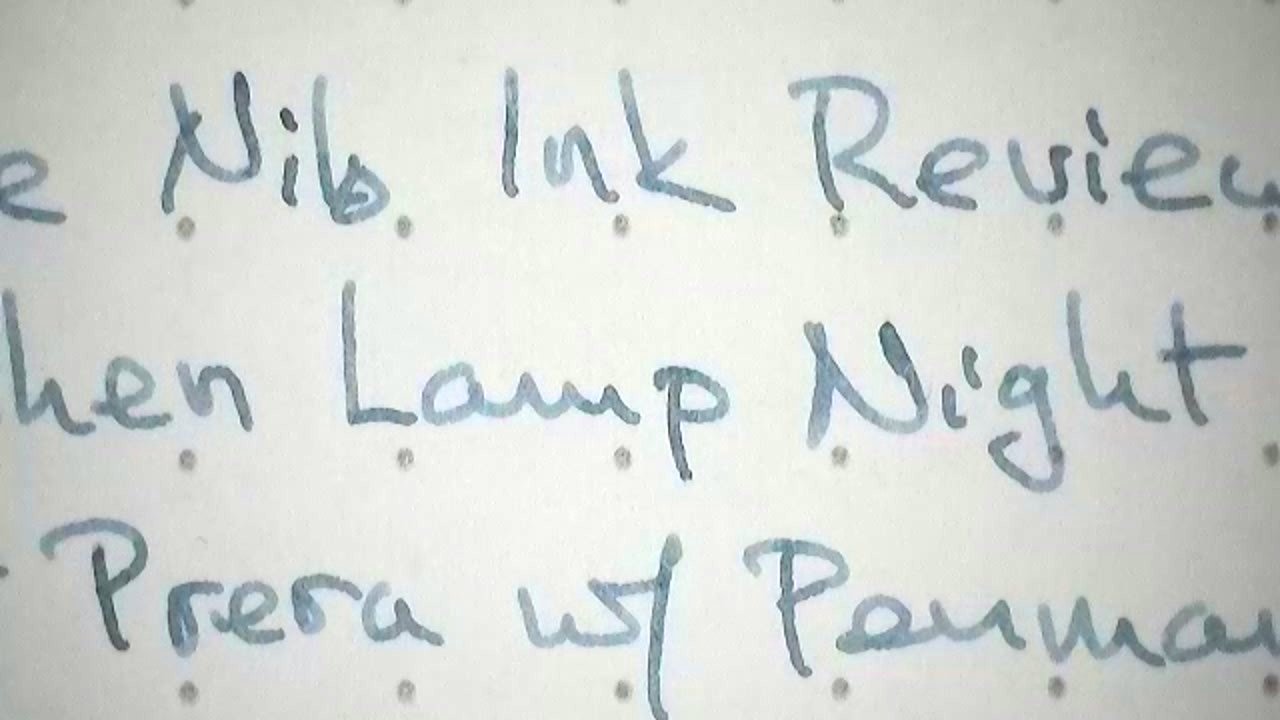 e Nib Ink Review
hen Lamp Night
Prera w/ Penman